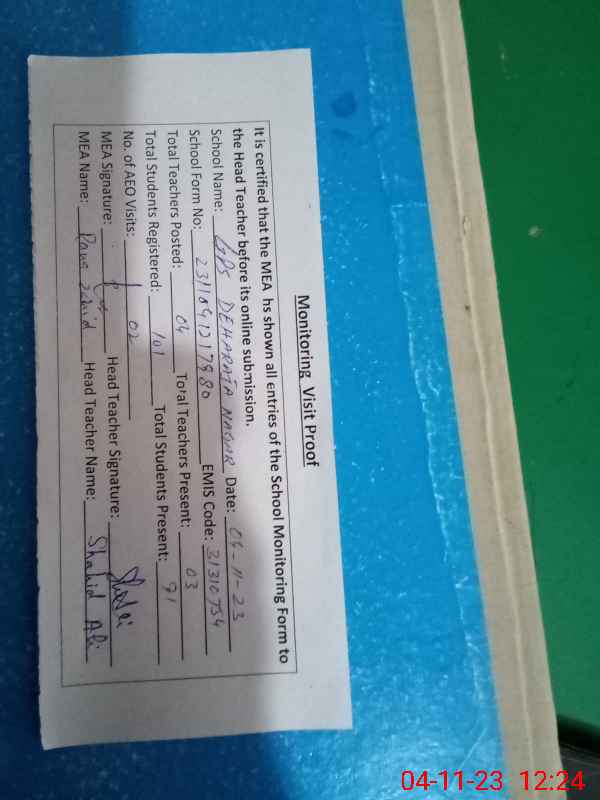 Monitoring Visit Proof
It is certified that the MEA hs shown all entries of the School Monitoring Form to
the Head Teacher before its online submission.
School Name: GPS DEHARATA NAGAR Date: 04-11-23
School Form No: EMIS Code: 31310754
Total Teachers Posted: 04 Total Teachers Present: 03
Total Students Registered: 101 Total Students Present: 91
No. of AEO Visits: 02
MEA Signature: Head Teacher Signature:
MEA Name: Head Teacher Name: Shahid Ali
04-11-23 12:24